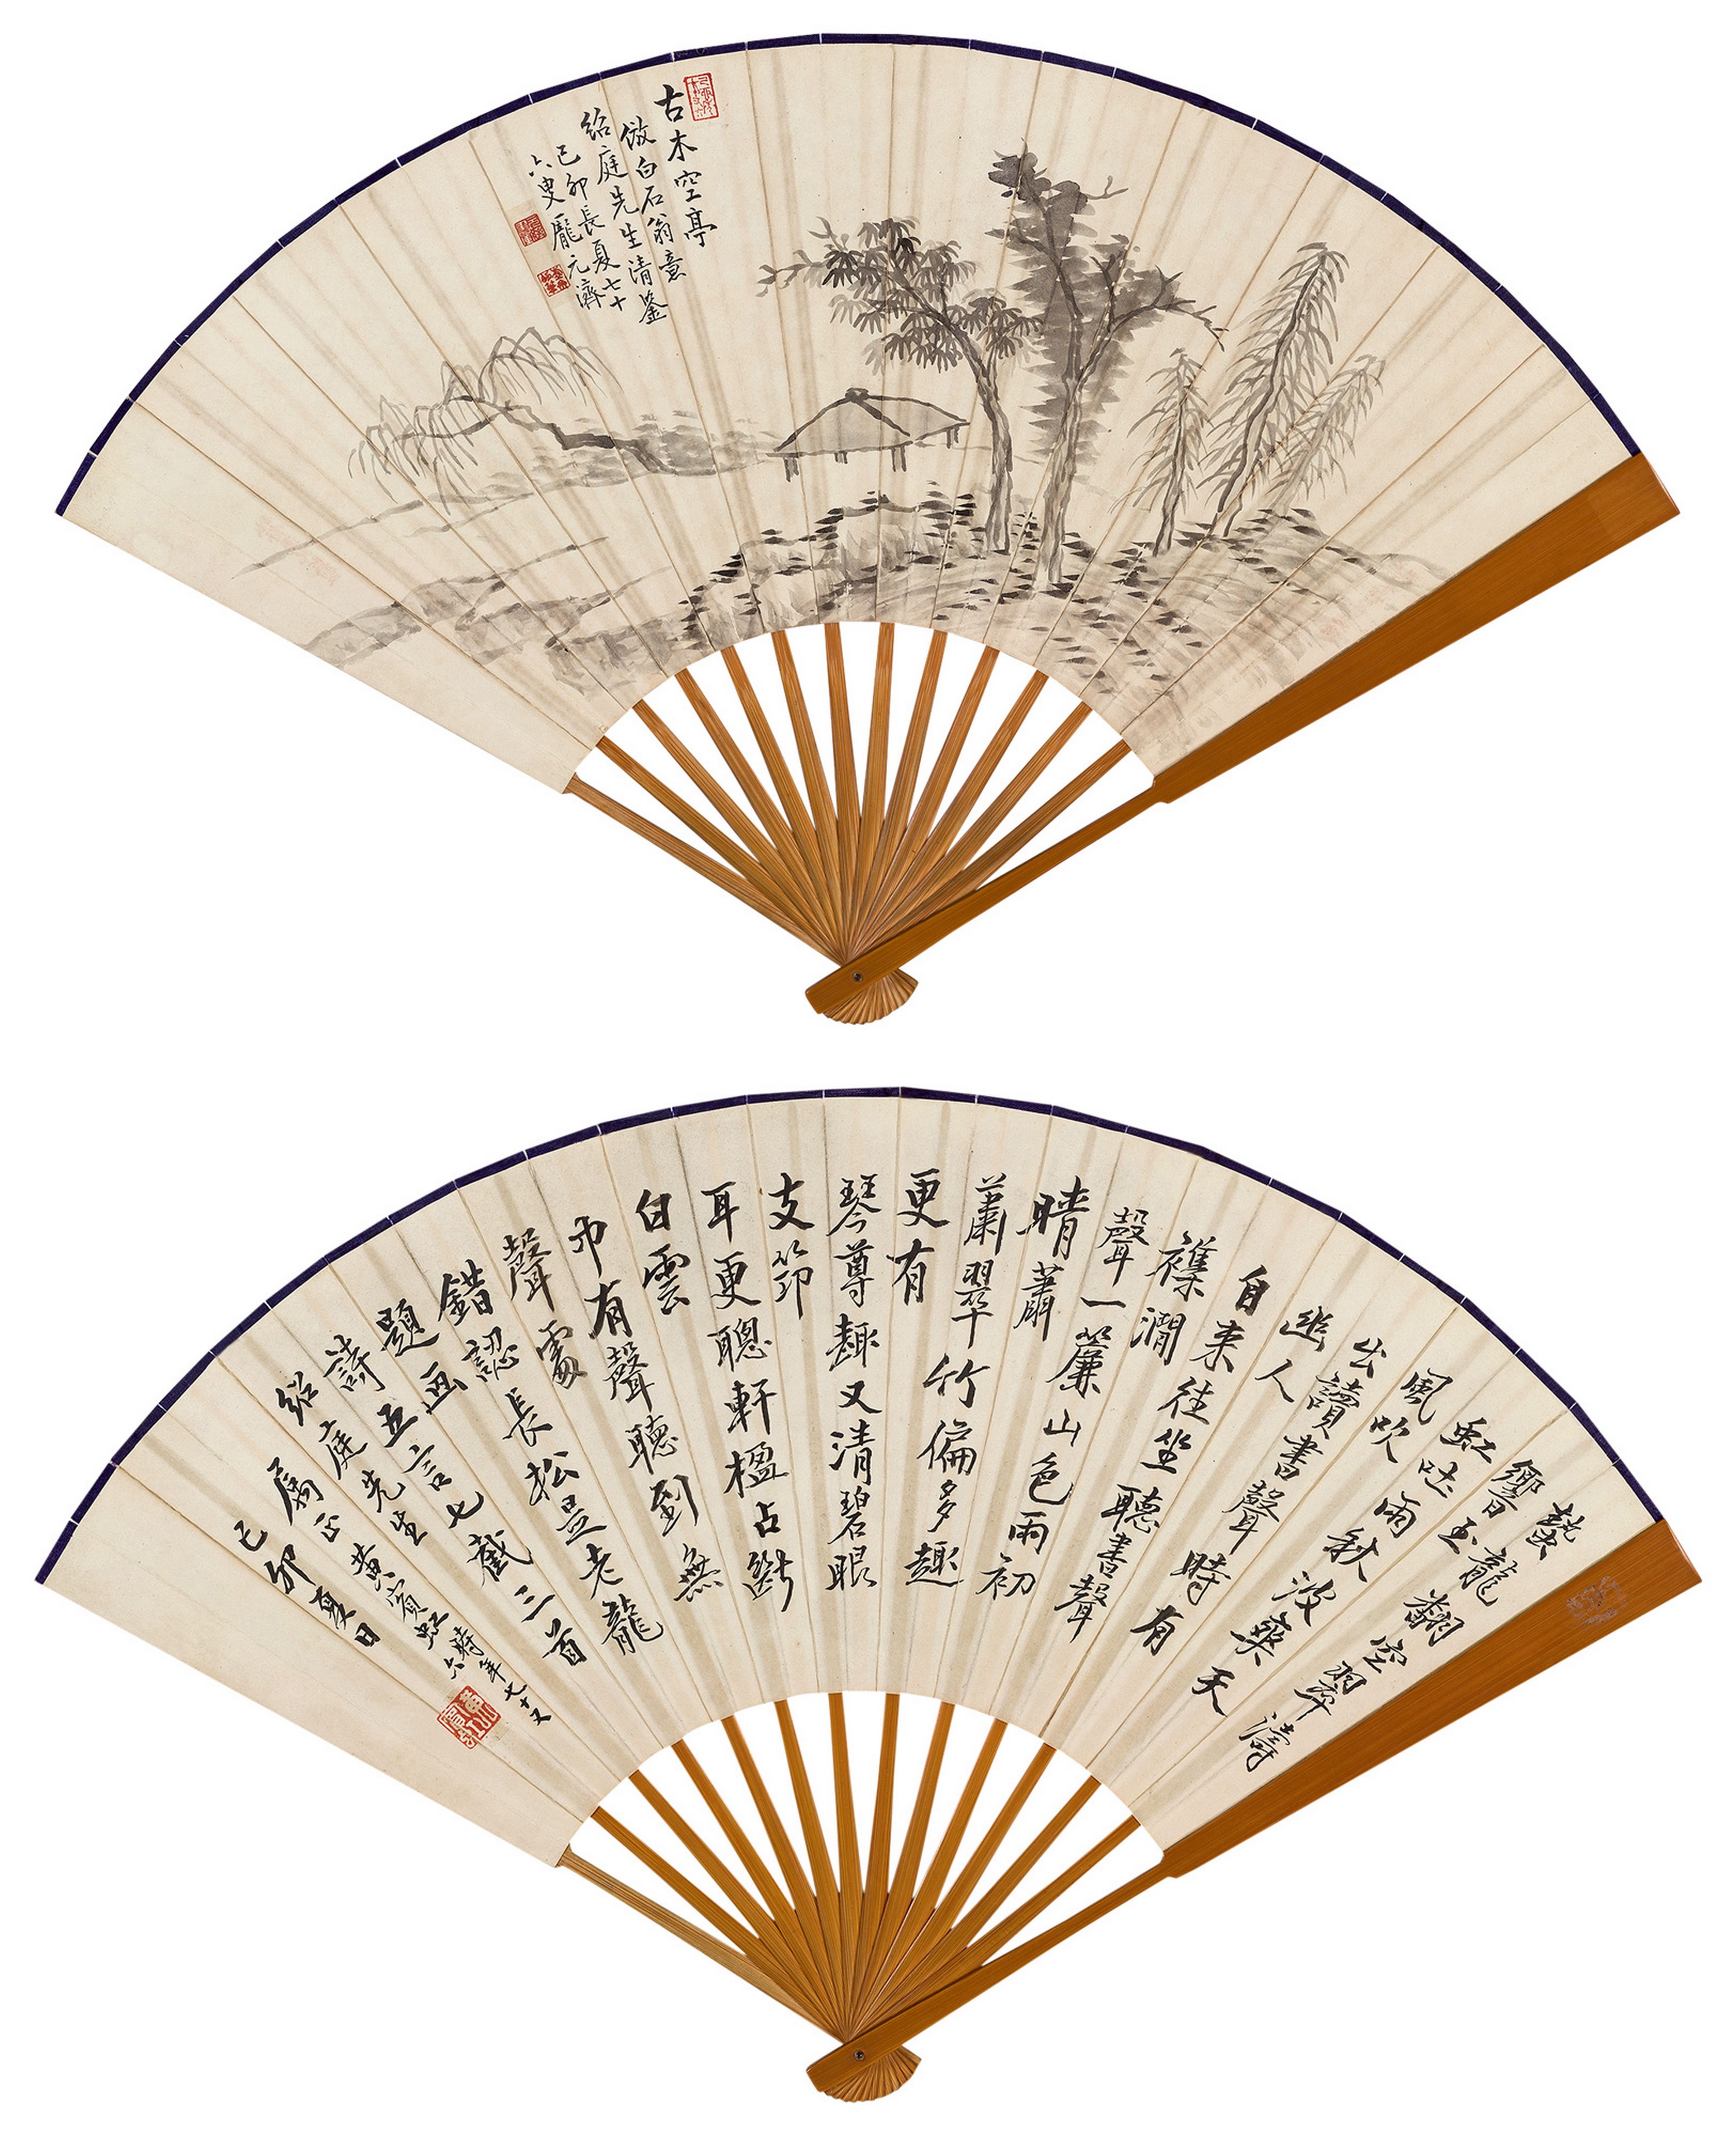 古木空亭
倣白石翁意
紹庭先生清鑒
己卯長夏七十
六叟龐元濟
蟄龍翻空翠濤
響玉
虹吐雨秋波爽天
風吹
出讀書聲時有
幽人
自来往坐聽書聲
襍澗
聲一簾山色雨初
晴蕭
蕭翠竹偏多趣
更有
琴尊趣又清碧眼
支筇
耳更聰軒楹占斷
白雲
帀有聲聽到無
聲處
錯認長松是老龍
題画
詩五言七截三首
紹庭先生
屬正黃賓虹時年七十又
六
己卯夏日